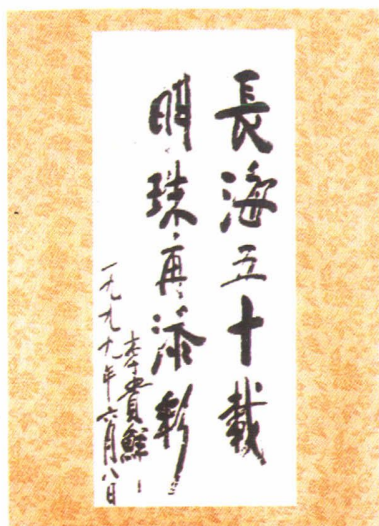 長海五十載
明珠再添彩
李貴鮮
一九九九年六月八日